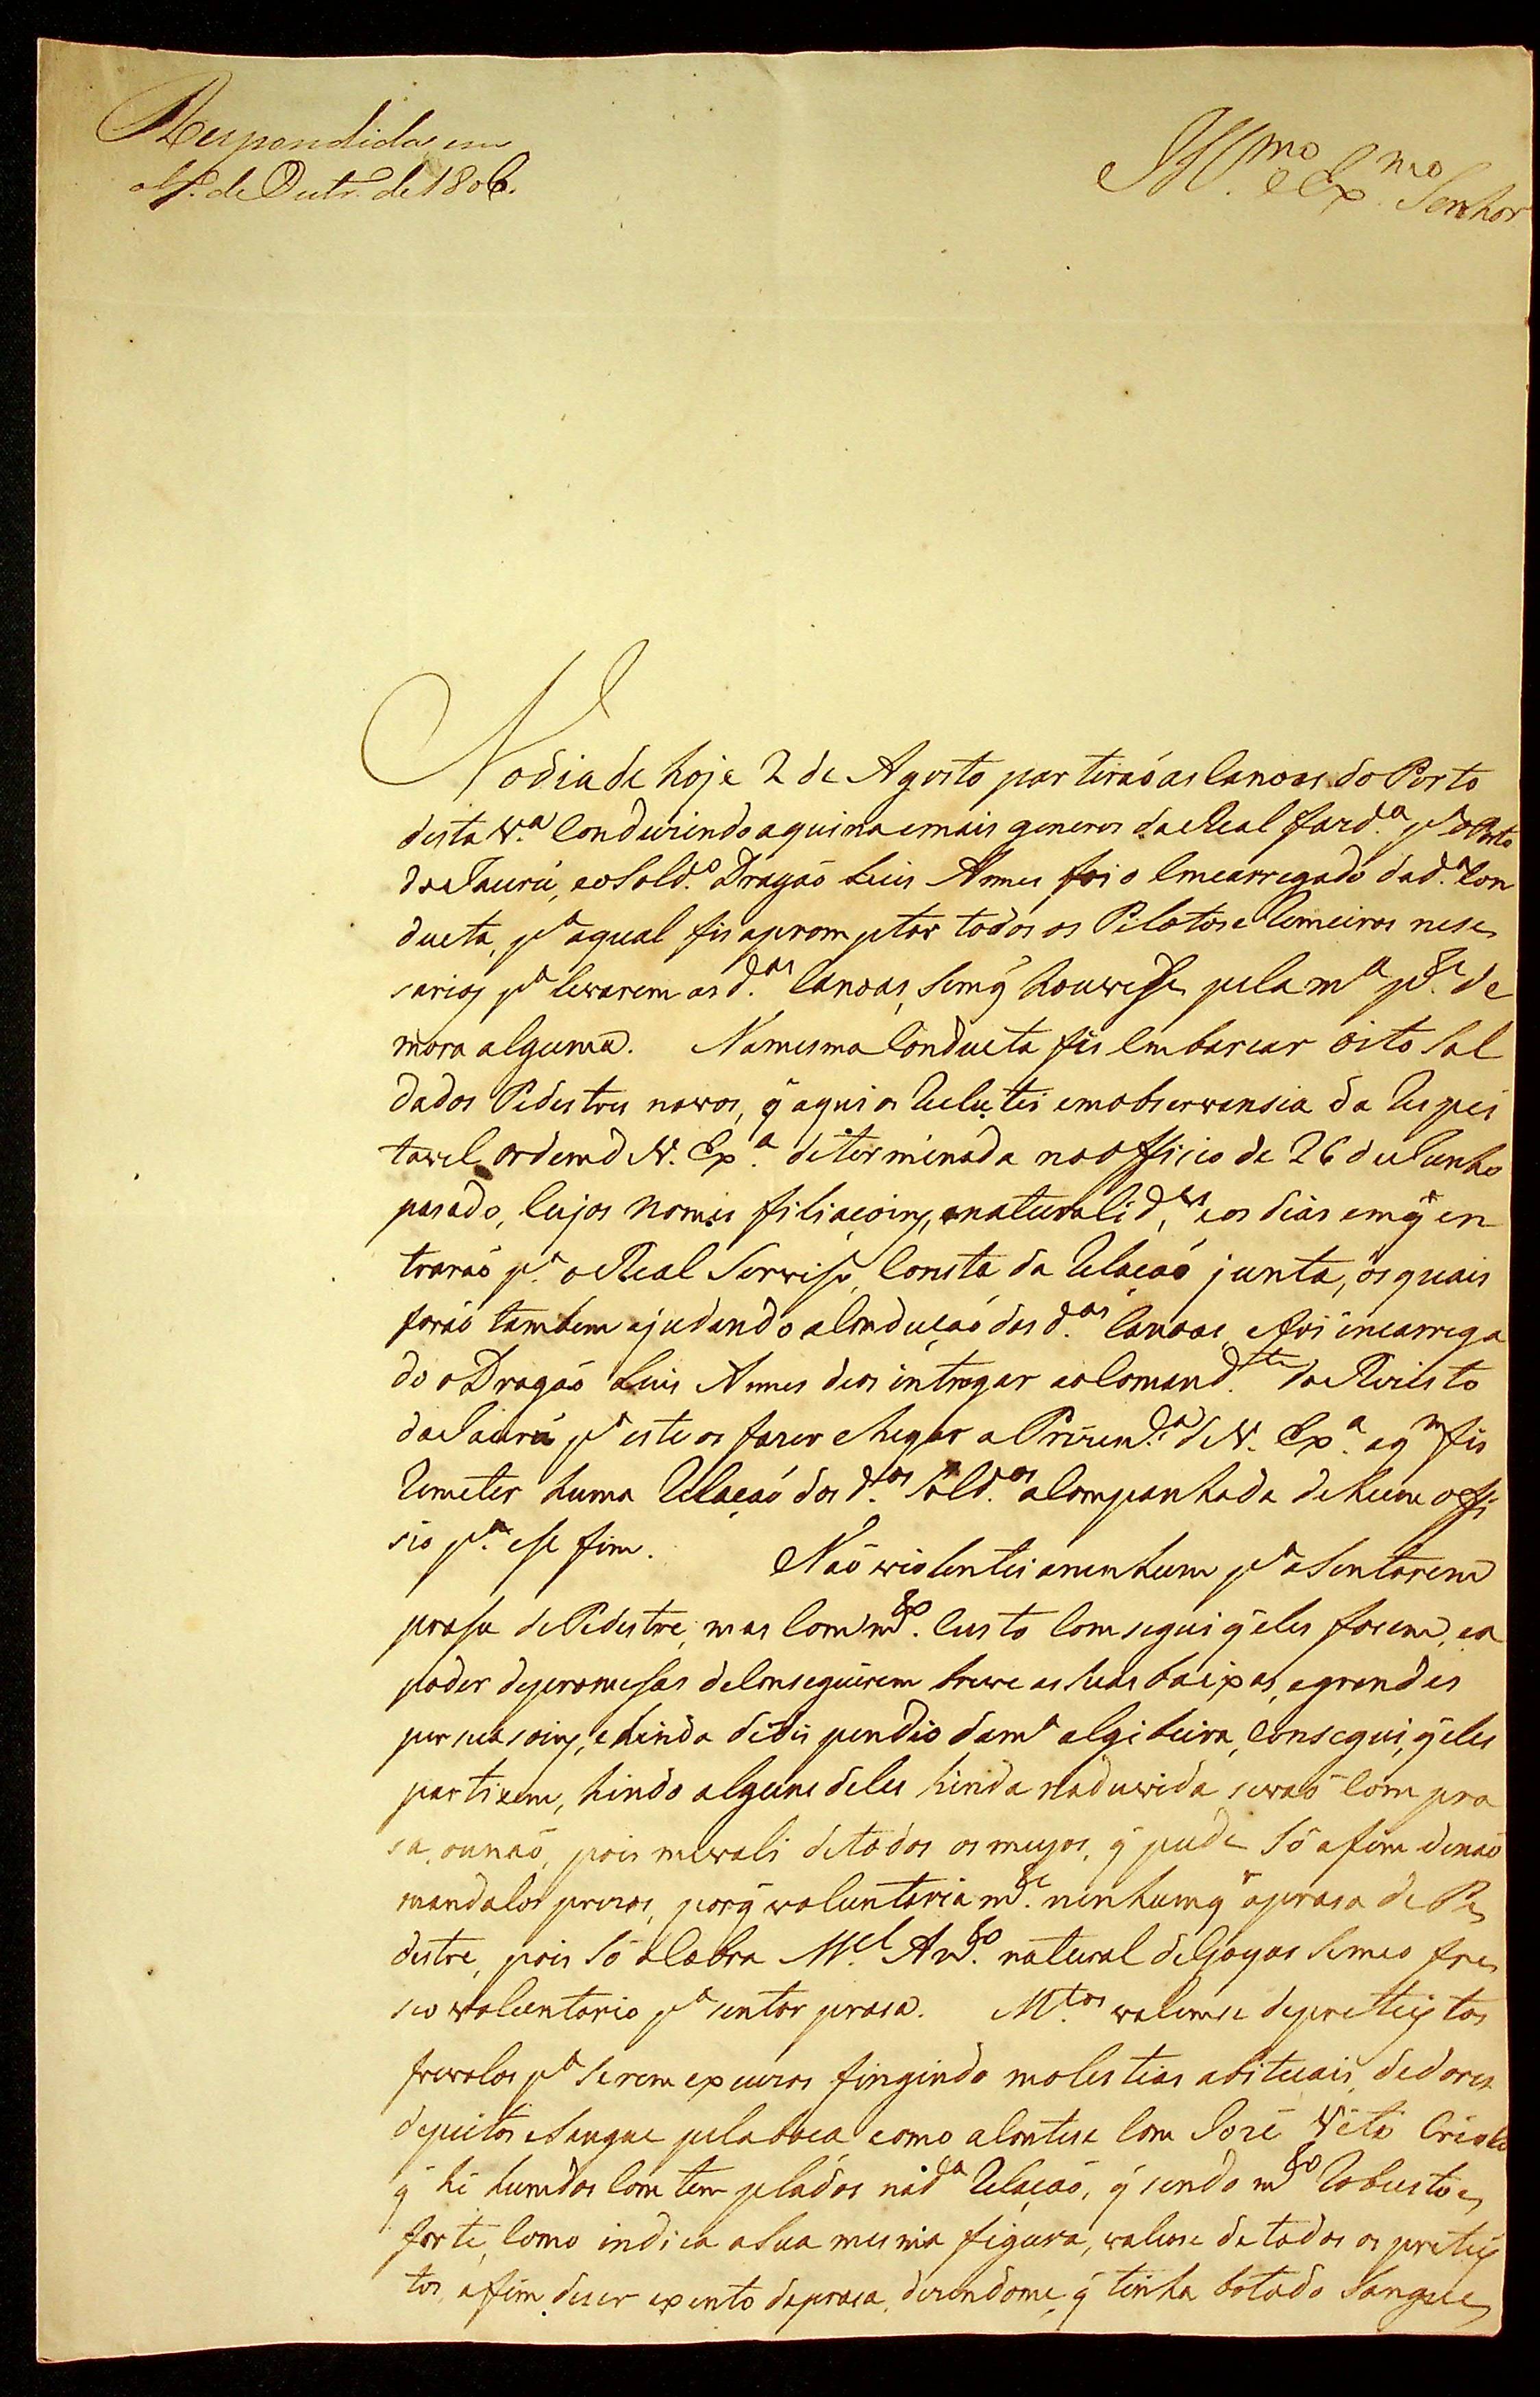 Respondida em
de Outr.º de 1806.
Ill.mo e Ex.mo Senhor
No dia de hoje 2 de Agosto partiraõ as Canoas do Porto
desta V.ª Conduzindo aquina e mais generos da Real fazd.ª p.ª o Porto
do Jaurú, e o Sold.º Dragaõ Luis Annes foi o Emcarregado da d.ª Con
ducta, p.ª a qual fis apromptar todos os Pilotos e Remeiros nese
sarios p.ª levarem as d.as Canoas, sem q̃ houvesse pela m.ª p.te de
mora alguma. Na mesma Conducta fis Embarcar oito Sol
dados Pedestres novos, q̃ aqui os Reclutei em observansia da Respei
tavel ordem de V. Ex.ª determinada no officio de 26 de Junho
pasado, Cujos nomes filiaçoins, e naturalid.es, e os dias em q̃ en
traraõ p.ª o Real Serviso, Consta da Relaçaõ junta, os quais
foraõ tambem ajudando a Conduçaõ das d.as Canoas, e foi incarrega
do o Dragaõ Luis Annes de os intregar ao Comand.te do Registo
do Jaurú p.ª este os fazer chegar a Prezen.ª de V. Ex.ª a q.m fis
Remeter huma Relaçaõ dos d.os Sold.os aCompanhada de hum offi
sio p.ª esse fim. Naõ violentei a nenhum p.ª aSentarem
prasa de Pedestre, mas Com m.to Custo Comsegui q̃ eles fosem, e a
poder de promessas de Conseguirem breve as suas baixas, e grandes
persuasoins, e hinda de dispendio da m.ª algibeira, Consegui, q̃ eles
partisem, hindo alguns deles hinda na duvida se vaõ Com pra
sa, ou naõ, pois me vali de todos os meyos, q̃ pude só afim de naõ
mandalos prezos, porq̃ voluntariam.te nenhum q.r a prasa de Pe
destre, pois só o Cabra M.el Ant.º natural de Goyas se me ofre
seo voluntario p.ª sentar prasa. M.tos valemse de preteistos
frivolos p.ª serem excuzos fingindo molestias abituais, de dores
de peitos e Sangue pela boca, como aContese Com José Vito Criolo
q̃ hé hum dos Contemplados na d.ª Relaçaõ, q̃ sendo m.to Robusto e
forte, Como indica a Sua mesma figura, valeose de todos os preteis
tos, afim de ser exento da prasa, dizendome, q̃ tinha botado Sangue